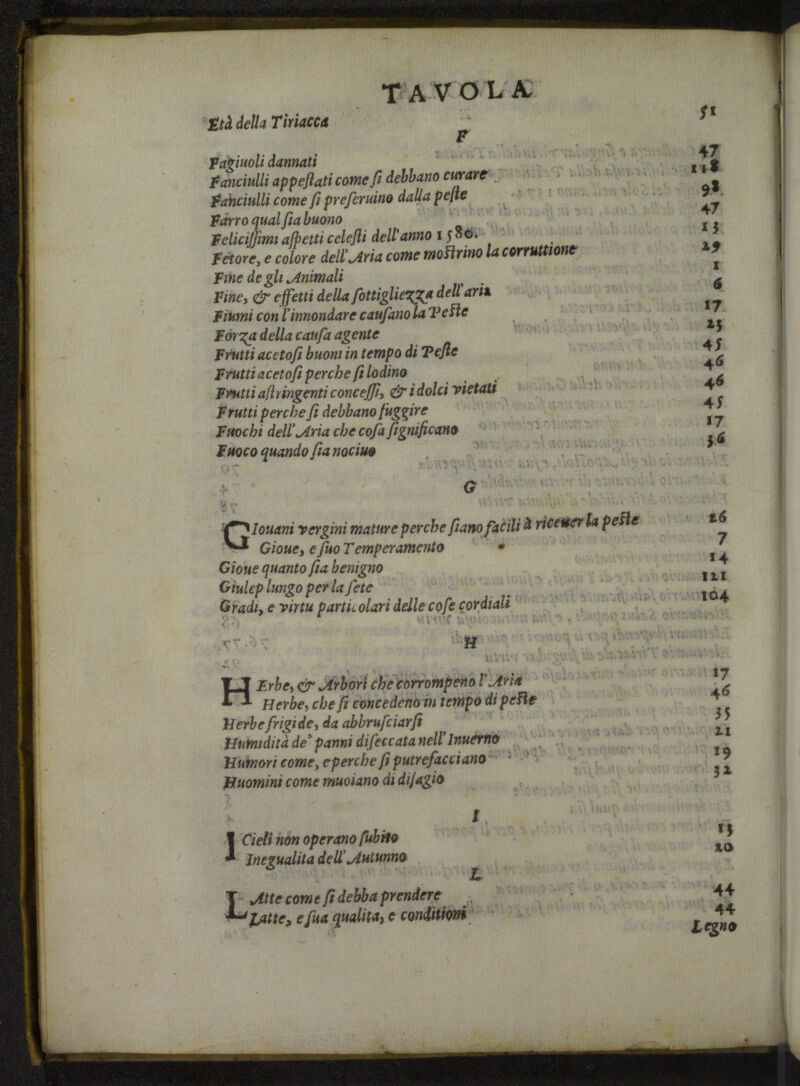 TAVOLA
Età della Tiriacca 51
F
Fagiuoli dannati 47
Fanciulli appestati come si debbano curare 118
Fanciulli come si preseruino dalla peste 98
Farro qual sia buono 47
Felicissimi aspetti celesti dell'anno 1580. 15
Fetore, e colore dell'Aria come mostrino la corruttione 29
Fine de gli Animali 1
Fine, & effetti della sottigliezza dell'aria 6
Fiumi con l'innondare causano la Peste 17
Forza della causa agente 25
Frutti acetosi buoni in tempo di Peste 45
Frutti acetosi perche si lodino 46
Frutti astringenti concessi, & i dolci vietati 46
Frutti perche si debbano fuggire 45
Fuochi dell'Aria che cosa significano 17
Fuoco quando sia nociuo 36
G
GIouani vergini mature perche siano facili à riceuer la peste 26
Gioue, e suo Temperamento 7
Gioue quanto sia benigno 14
Giulep lungo per la sete 121
Gradi, e virtu particolari delle cose cordiali 104
H
HErbe, & Arbori che corrompeno l'Aria 17
Herbe, che si concedeno in tempo di peste 46
Herbe frigide, da abbrusciarsi 35
Humidità de' panni diseccata nell'Inuerno 21
Humori come, e perche si putrefacciano 19
Huomini come muoiano di disagio 32
I
I Cieli non operano subito 13
Inegualita dell'Autunno 20
L
LAtte come si debba prendere 44
Latte, e sua qualita, e conditioni 44
Legno